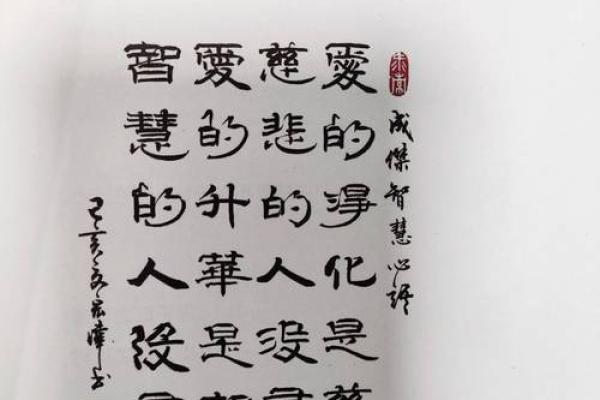 成傑智慧心語
愛的淨化是慈
慈悲的人沒
愛的升華是
智慧的人沒
己亥